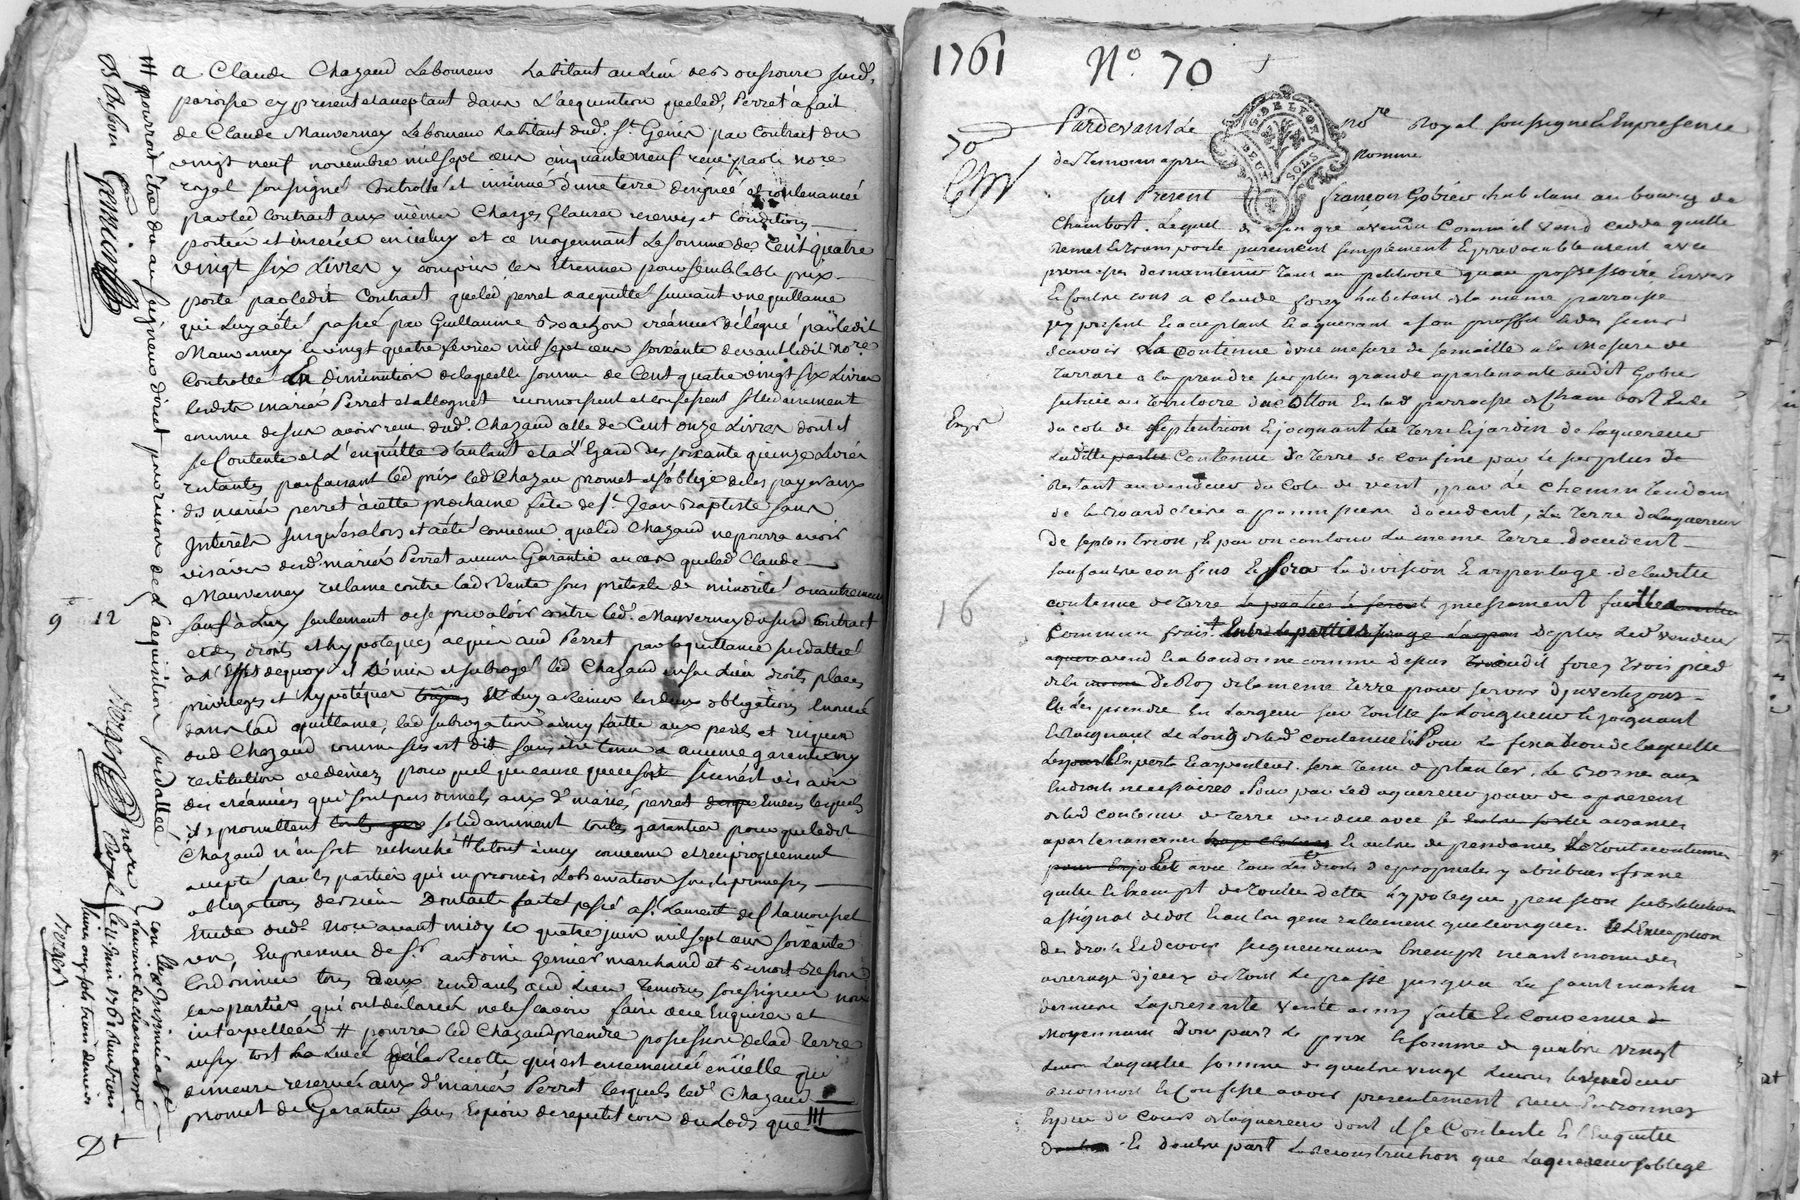 a Claude Chazaud Laboureur habitant au lieu de sud.
paroisse cy present et acceptant dans L'acquisition que led. Perret a fait
de Claude Mauvernay Laboureur habitant dud. St Genis par Contract du
vingt neuf novembre mil sept cens cinquante neuf receu par le nore
royal soussigné Controllé et insinué d'une terre designée et contenancée
par led contract aux mêmes Charges Clauses reserves et Conditions
portées et inserées en icelux et ce moyennant La somme de Cent quatre
vingt six Livres y compris les Etrennes pour semblable prix
porté par ledit Contract que led perret a acquitté suivant une quittance
qui Luy a été passée par Guillaume creancier délégué par ledit
Mauvernay le vingt quatre fevrier mil sept cens soixante devant ledit Nore.
Controllée En diminution de laquelle somme de Cent quatre vingt six Livres
lesdits mariés Perret et allognet reconnoissent et confessent solidairement
comme dessus avoir receu dud. Chazaud celle de Cent onze Livres dont il
se Contente et L'enquitte d'autant et a L'Egard des soixante quinze Livres
restantes parfaisant led prix led Chazau promet et s'oblige de les payer aux
ds mariés perret a cette prochaine fête de St Jean Baptiste sans
Interêts jusqu'alors et a été convenu que led Chazaud ne pourra avoir
vis a vis desd. mariés Perret aucune Garantie au cas que led Claude
Mauvernay reclame contre lad Vente sous pretexte de minorité ou autrement
sauf a Luy seulement de se prevaloir contre led. Mauvernay du susd Contract
et des droits et hypoteques acquis aud Perret par la quittance susdattée
a L'Effet de quoy il a mis et subrogé led Chazaud en son Lieu droits places
privileges et hypotéques Et Luy a Remis les deux obligations Enoncé
dans lad quittance, lad subrogation ainsy faitte aux perils et risques
dud Chazaud comme il est dit sans être tenu a aucune garentie ny
restitution de deniers pour quel que cause que ce soit si ce n'est vis a vis
des créanciers qui sont personnels aux ds mariés perret Envers lesquels
ils promettent solidairement toutes garenties pour que ledit
Chazaud n'en soit recherché # le tout ainsy convenu et reciproquement
accepté par les parties qui en promis L'observation sous les promesses
obligations de Dont acte fait et passé a St Laurent de Chamousset
Etude dud. Nore avant midy le quatre juin mil sept cens soixante
un, En presence de Sr antoine genier marchand et Benoit Besson
Cordonnier tous deux residants aud Lieu Temoins soussignés non
les parties qui ont declarées ne le scavoir faire de ce Enquises et
interpellées # pourra led Chazaud prendre possession de lad Terre
aussy tost La Levée de la Recolte qui est ensemencée en icelle qui
demeure reservée aux ds mariés Perret lesquels led. Chazaud
promet de Garantir sans Espoir de repetition du Lods que #
# pourroit être du au seigneur direct pour raison de L'acquisition susdattée
B Besson
nore
royal
9e 12
1761
No. 70
70
G. DE LYON
DEUX SOLS
Pardevant Le Nore Royal soussigné En presence
des Temoins apres Nommé
fut Present françois Gobier habitant au bourg de
Chambost. Lequel de son gré a vendu Comme il vend Cedde quitte
Remet Et transporte purement simplement Et irrevocablement avec
promesses de maintenir tant au petitoire qu'au possessoire Envers
Et Contre tous a Claude forez habitant de la même parroisse
icy present Et acceptant Et aquerant a son proffit Et des siens
Scavoir La Contenue d'une mesure de semaille a la Mesure de
Tarrare a la prendre sur plus grande apartenante audit Gobier
située au Territoire du Cotton En lad parroisse de Chambost Et de
du coté de septentrion Et joignant La Terre Et jardin de Laquereur
Laditte Contenue De Terre se confine par Le surplus de
Restant au vendeur du Coté de vent, par Le Chemin Tendant
de la d'occident, La Terre de Laquereur
de septentrion, Et par un contour La meme Terre d'occident
sauf autre confins Et sera La division Et arpentage de laditte
contenue de Terre incessament faitte
Commun frais De plus Led. vendeur
vend Et abandonne comme dessus audit forez trois pied
de la meme Terre pour servir
a Les prendre En Largeur sur Toutte sa Longueur Et joignant
Et Joignant Le Long de lad. contenue Et Pour La fixation de laquelle
Experts Et arpenteurs. sera Tenu de planter Le Borne aux
Endroits necessaires. Pour par Led aquereur jouir de apresent
de lad contenue de Terre vendue avec se aisances
apartenances Et autre dependances Et Tout accoutumer
avec tous Les droits de proprietes y attribues franc
quitte Et Exempt de Touttes dette hypoteque pension substitution
assignat de dot Et autre generallement quelconques. a L'Exception
des droits Et devoirs seigneuriaux Exempt neantmoins des
arrerage d'jceux de tout Le passé jusqua La saint martin
derniere La presente Vente ainsy faite Et Convenue
Moyennant D'une part Le prix Et somme de quatre vingt
Livres Laquelle somme de quatre vingt Livres Le vendeur
a reconnu Et Confesse avoir presentement receu En Bonnes
Espece du Cours de laquereur dont il se Contente Et L'enquitte
Et d'autre part La Reconstruction que Laquereur soblige
Enge